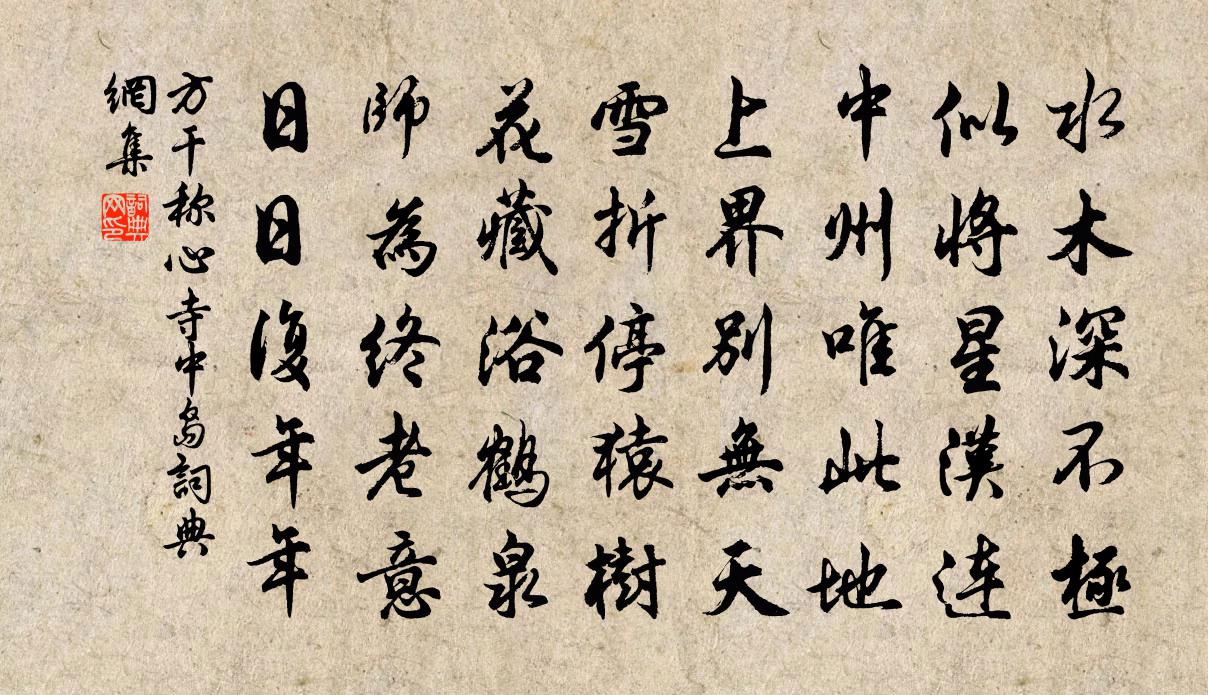 水木深不極
似將星漢連
中州唯此地
上界別無天
雪折停猿樹
花藏浴鶴泉
師為終老意
日日復年年
方干称心寺中島詞典
網集
詞典
网印